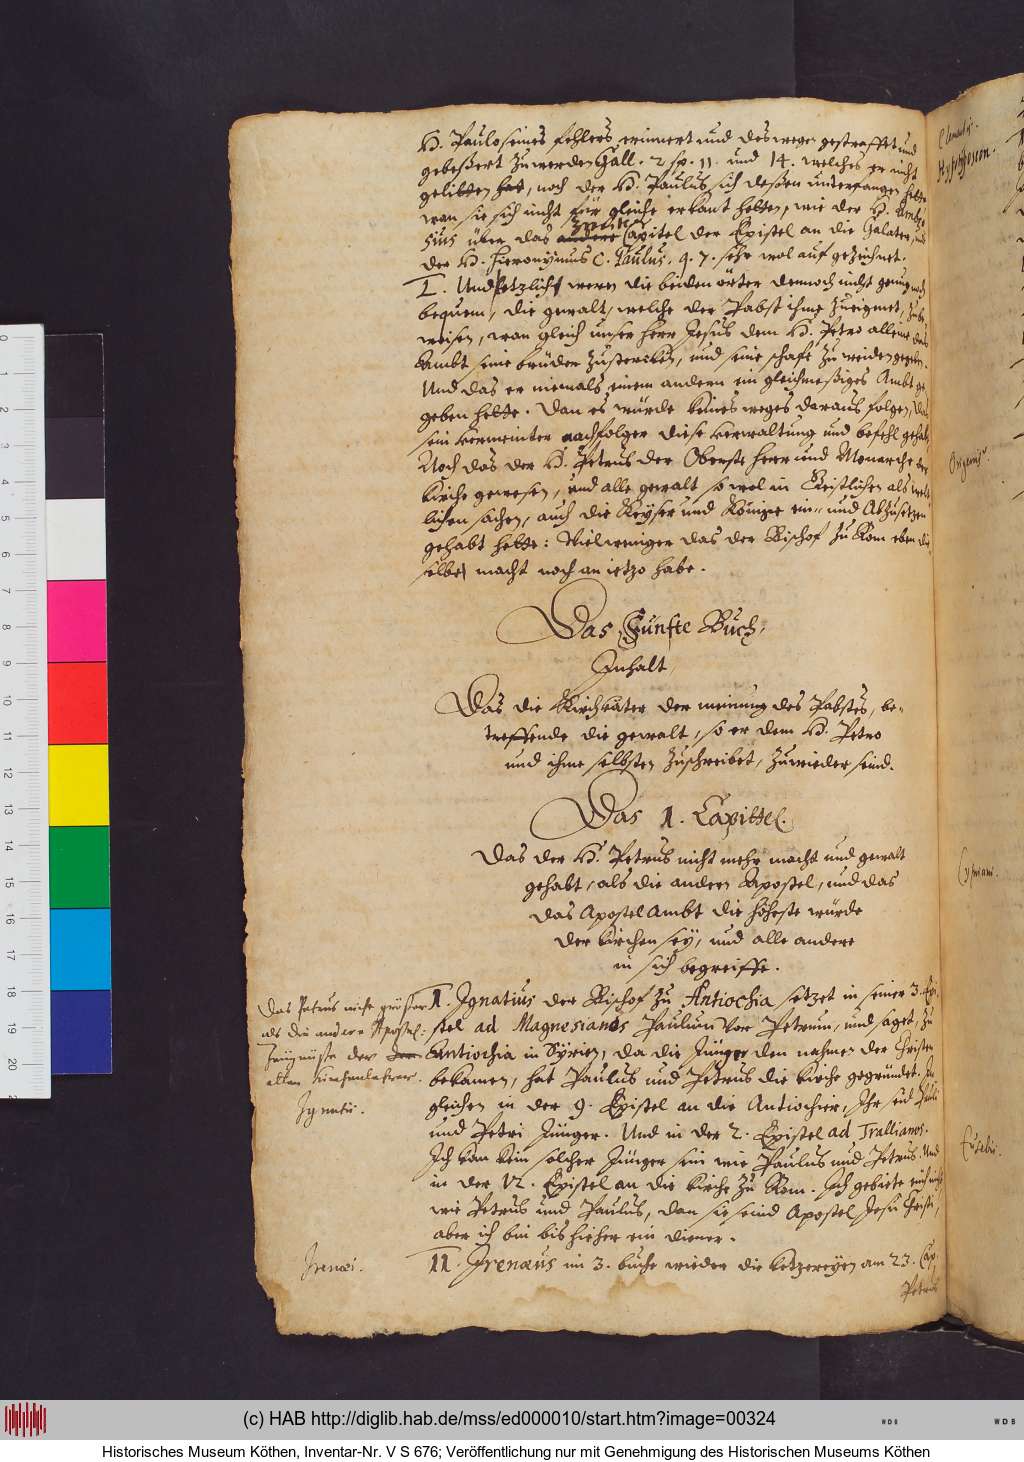 H. Paulo seines fehlers erinnert und deswegen gestrafft und
gebeßert zu werden Gall. 2 sp. 11. und 14. welches er nicht
gelitten hat, noch der H. Paulus sich deßen unterfangen hette
wan sie sich nicht für gleiche erkant hetten, wie der H. Ambro
sius über das andere zweite Capitel der Epistel an die Galater, und
der H. Hieronymus C. Paulus. q. 7. sehr wol auf gezeichnet.
I. Und letzlich weren die beiden örter dennoch nicht genug noch
bequem, die gewalt, welche der Pabst ihme zueignet, zu be
weisen, wan gleich unser herr Jesus dem H. Petro alleine das
Ambt seine brüder zu stercken, und seine schafe zu weiden gegeben.
Und das er niemals einem andern ein gleichmeßiges Ambt ge
geben hette. Dan es würde keines weges daraus folgen, das
sein vermeinter nachfolger diese verwaltung und befehl gehabt,
Noch das der H. Petrus der Oberste herr und Monarche der
Kirche gewesen, und alle gewalt so wol in Geistlichen als welt
lichen sachen, auch die Keyser und Könige ein- und Abzusetzen
gehabt hette: Vielweniger das der Bischof zu Rom eben die
selbe macht noch an ietzo habe.
Das Fünfte Buch,
Inhalt
Das die Kirchväter der meinung des Pabstes, be-
treffende die gewalt, so er dem H. Petro
und ihme selbsten zuschreibet, zuwieder seind.
Das 1. Capittel.
Das der H. Petrus nicht mehr macht und gewalt
gehabt, als die andern Apostel, und das
das Apostel Ambt die höheste würde
der kirchen sey, und alle andere
in sich begreiffe.
Das Petrus nicht größer
als die andern Apostel:
Zeugnüße der
alten kirchenlehrer.
Ignatii.
1. Ignatius der Bischof zu Antiochia setzet in seiner 3. Epi
stel ad Magnesianos Paulum vor Petrum, und saget, zu
Antiochia in Syrien, da die Jünger den nahmen der Christen
bekamen, hat Paulus und Petrus die kirche gegründet. In
gleichen in der 9. Epistel an die Antiochier, Ihr seid Pauli
und Petri Jünger. Und in der 2. Epistel ad Trallianos.
Ich kan kein solcher Jünger sein wie Paulus und Petrus. Und
in der 12. Epistel an die kirche zu Rom. Ich gebiete euch nicht
wie Petrus und Paulus, dan sie seind Apostel Jesu Christi,
aber ich bin bis hieher ein diener.
Irenæi.
11. Irenæus im 3. buche wieder die ketzereyen am 23. Cap.
Petrus
Clementis.
Hypotyposeon.
Origenis.
Cypriani.
Eusebii.
0 1 2 3 4 5 6 7 8 9 10 11 12 13 14 15 16 17 18 19 20
(c) HAB http://diglib.hab.de/mss/ed000010/start.htm?image=00324
WDB
WDB
Historisches Museum Köthen, Inventar-Nr. V S 676; Veröffentlichung nur mit Genehmigung des Historischen Museums Köthen